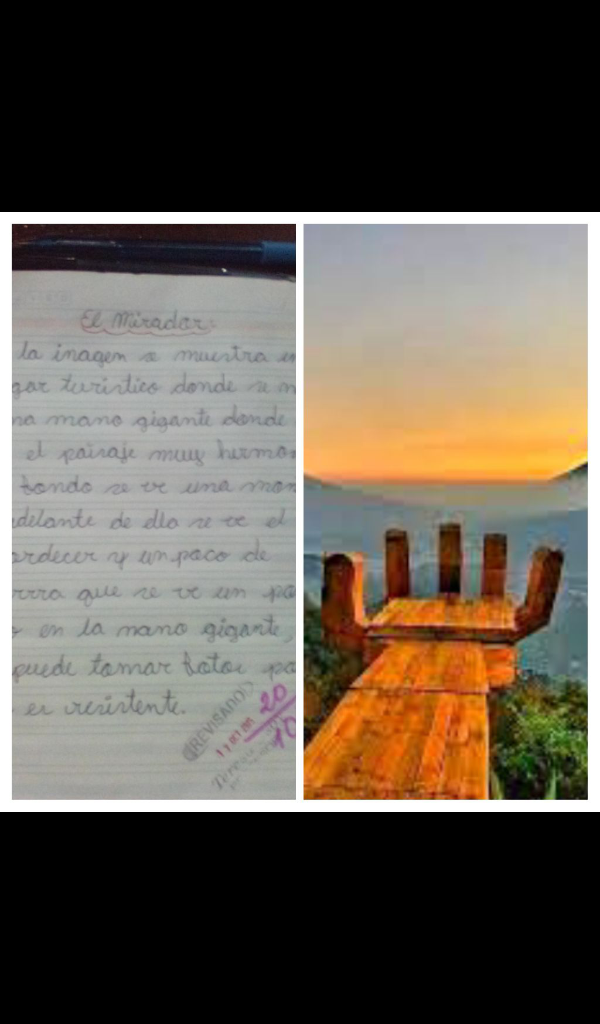 El Mirador:
la inagen se muestra en
gar turistico donde se m
na mano gigante donde
el paisaje muy hermo
fondo se ve una mon
delante de ella se ve el
ardecer y un poco de
rra que se ve un pa
en la mano gigante,
puede tomar fotos pa
es resistente.
REVISADO
20
10